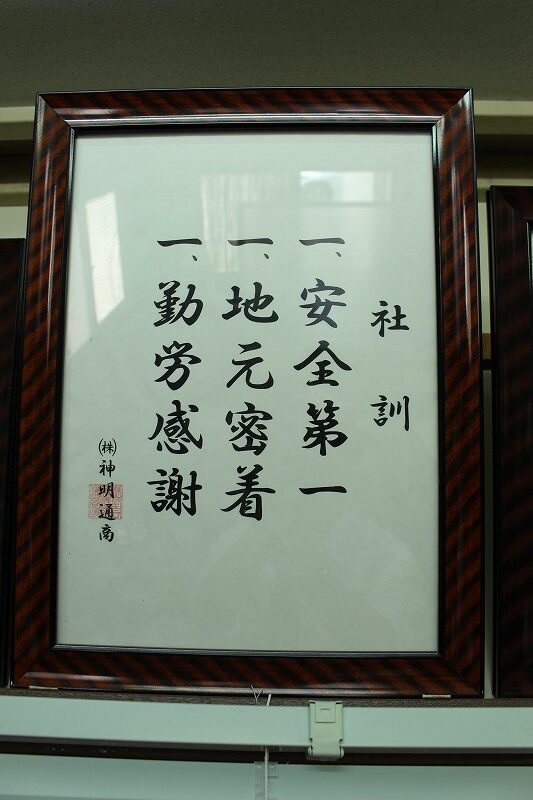 社訓
一、安全第一
一、地元密着
一、勤労感謝
㈱神明通商